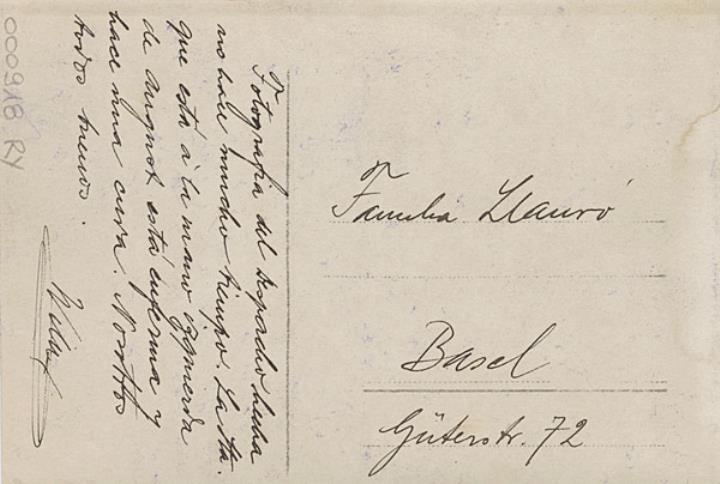 Fotografia del despacho hecha
no hace mucho tiempo. La Sta.
que está á la mano izquierda
de August está enferma y
hace una cura. Nosotros
todos buenos.
Familia Llauró
Basel
Güterstr. 72
000918 RY